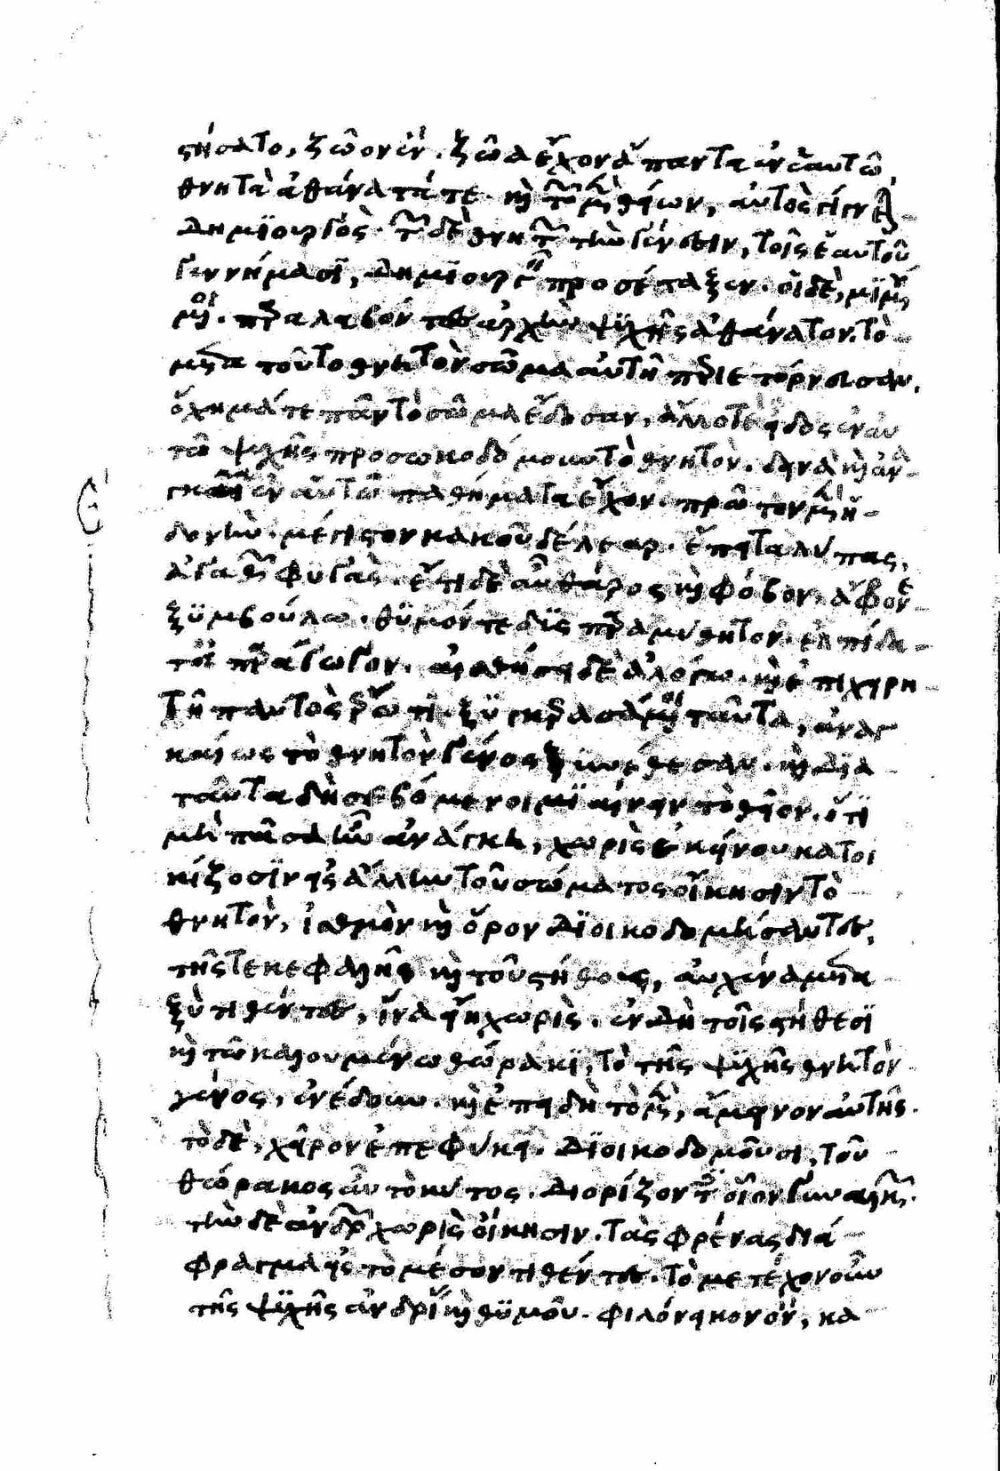 στήσατο, ζῶον ἓν. ζῶα ἔχον ἅπαντα ἐν ἑαυτῶ,
θνητὰ ἀθάνατά τε. καὶ τῶν μὲν θείων, αὐτὸς γίγνε-
δημϊουργὸς. τῶν δὲ θνητῶν τὴν γένεσιν, τοῖς ἑαυτοῦ
γεννήμασϊ, δημϊουργεῖν προσέταξεν. οἱ δὲ, μϊμού-
μενοι. παραλαβόντες ἀρχὴν ψϋχῆς ἀθάνατον. τὸ
μετὰ τοῦτο θνητὸν σῶμα αὐτῆ περιετόρνευσαν.
ὄχημά τε πᾶν τὸ σῶμα ἔδοσαν, ἄλλό τε εἶδος ἐν αὐ
τῶ ψυχῆς προσωκοδόμουν τὸ θνητὸν. δεινὰ καὶ ἀν-
γκαῖα ἐν αὑτῶ παθήματα ἔχον. πρῶτον μὲν ἡ-
δονὴν. μέγιστον κακοῦ δέλεαρ. ἔπειτα λύπας,
ἀγαθῶν φυγὰς. ἔτι δὲ αὖ θάρος καὶ φόβον, ἄφρονε
ξϋμβούλω. θϋμόν τε δϋσπαραμύθητον. ἐλπίδα-
τ' εὐπαράγωγον. αἰσθήσει δὲ ἀλόγω. καὶ ἐπιχειρη-
τῆ παντὸς ἔρωτι. ξϋγκερασάμενοι ταῦτα, ἀναγ
καίως τὸ θνητὸν γένος ξυνέθεσαν. καὶ δϊα
ταῦτα δὴ σεβόμενοι μϊαίνειν τὸ θεῖον. ὅτι
μὴ πᾶσα ἦν ἀνάγκη, χωρὶς ἐκείνου κατοι
κίζοσϊν εἰς ἄλλην τοῦ σώματος οἴκησιν τὸ
θνητὸν, ἰσθμὸν καὶ ὅρον δϊοικοδομήσαντες,
τῆς τε κεφαλῆς καὶ τοῦ στήθους, αὐχένα μετα
ξὺ τιθέντες, ἵνα εἴη χωρὶς. ἐν δὴ τοῖς στήθεσϊ
καὶ τῶ καλουμένω θώρακϊ, τὸ τῆς ψϋχῆς θνητὸν
γένος, ἐνέδουν. καὶ ἐπειδὴ τὸ μὲν, ἄμεινον αὐτῆς.
τὸ δὲ, χεῖρον ἐπεφύκει. δϊοικοδομοῦσι, τοῦ
θώρακος αὖ τὸ κύτος. διορίζοντες οἷον γυναικῶν.
τὴν δὲ ἀνδρῶν χωρὶς οἴκησιν. τὰς φρένας διά
φραγμα εἰς τὸ μέσον τιθέντες. τὸ μετέχον οὖν
τῆς ψϋχῆς ἀνδρείας καὶ θϋμοῦ. φιλόνεικον ὂν, κα